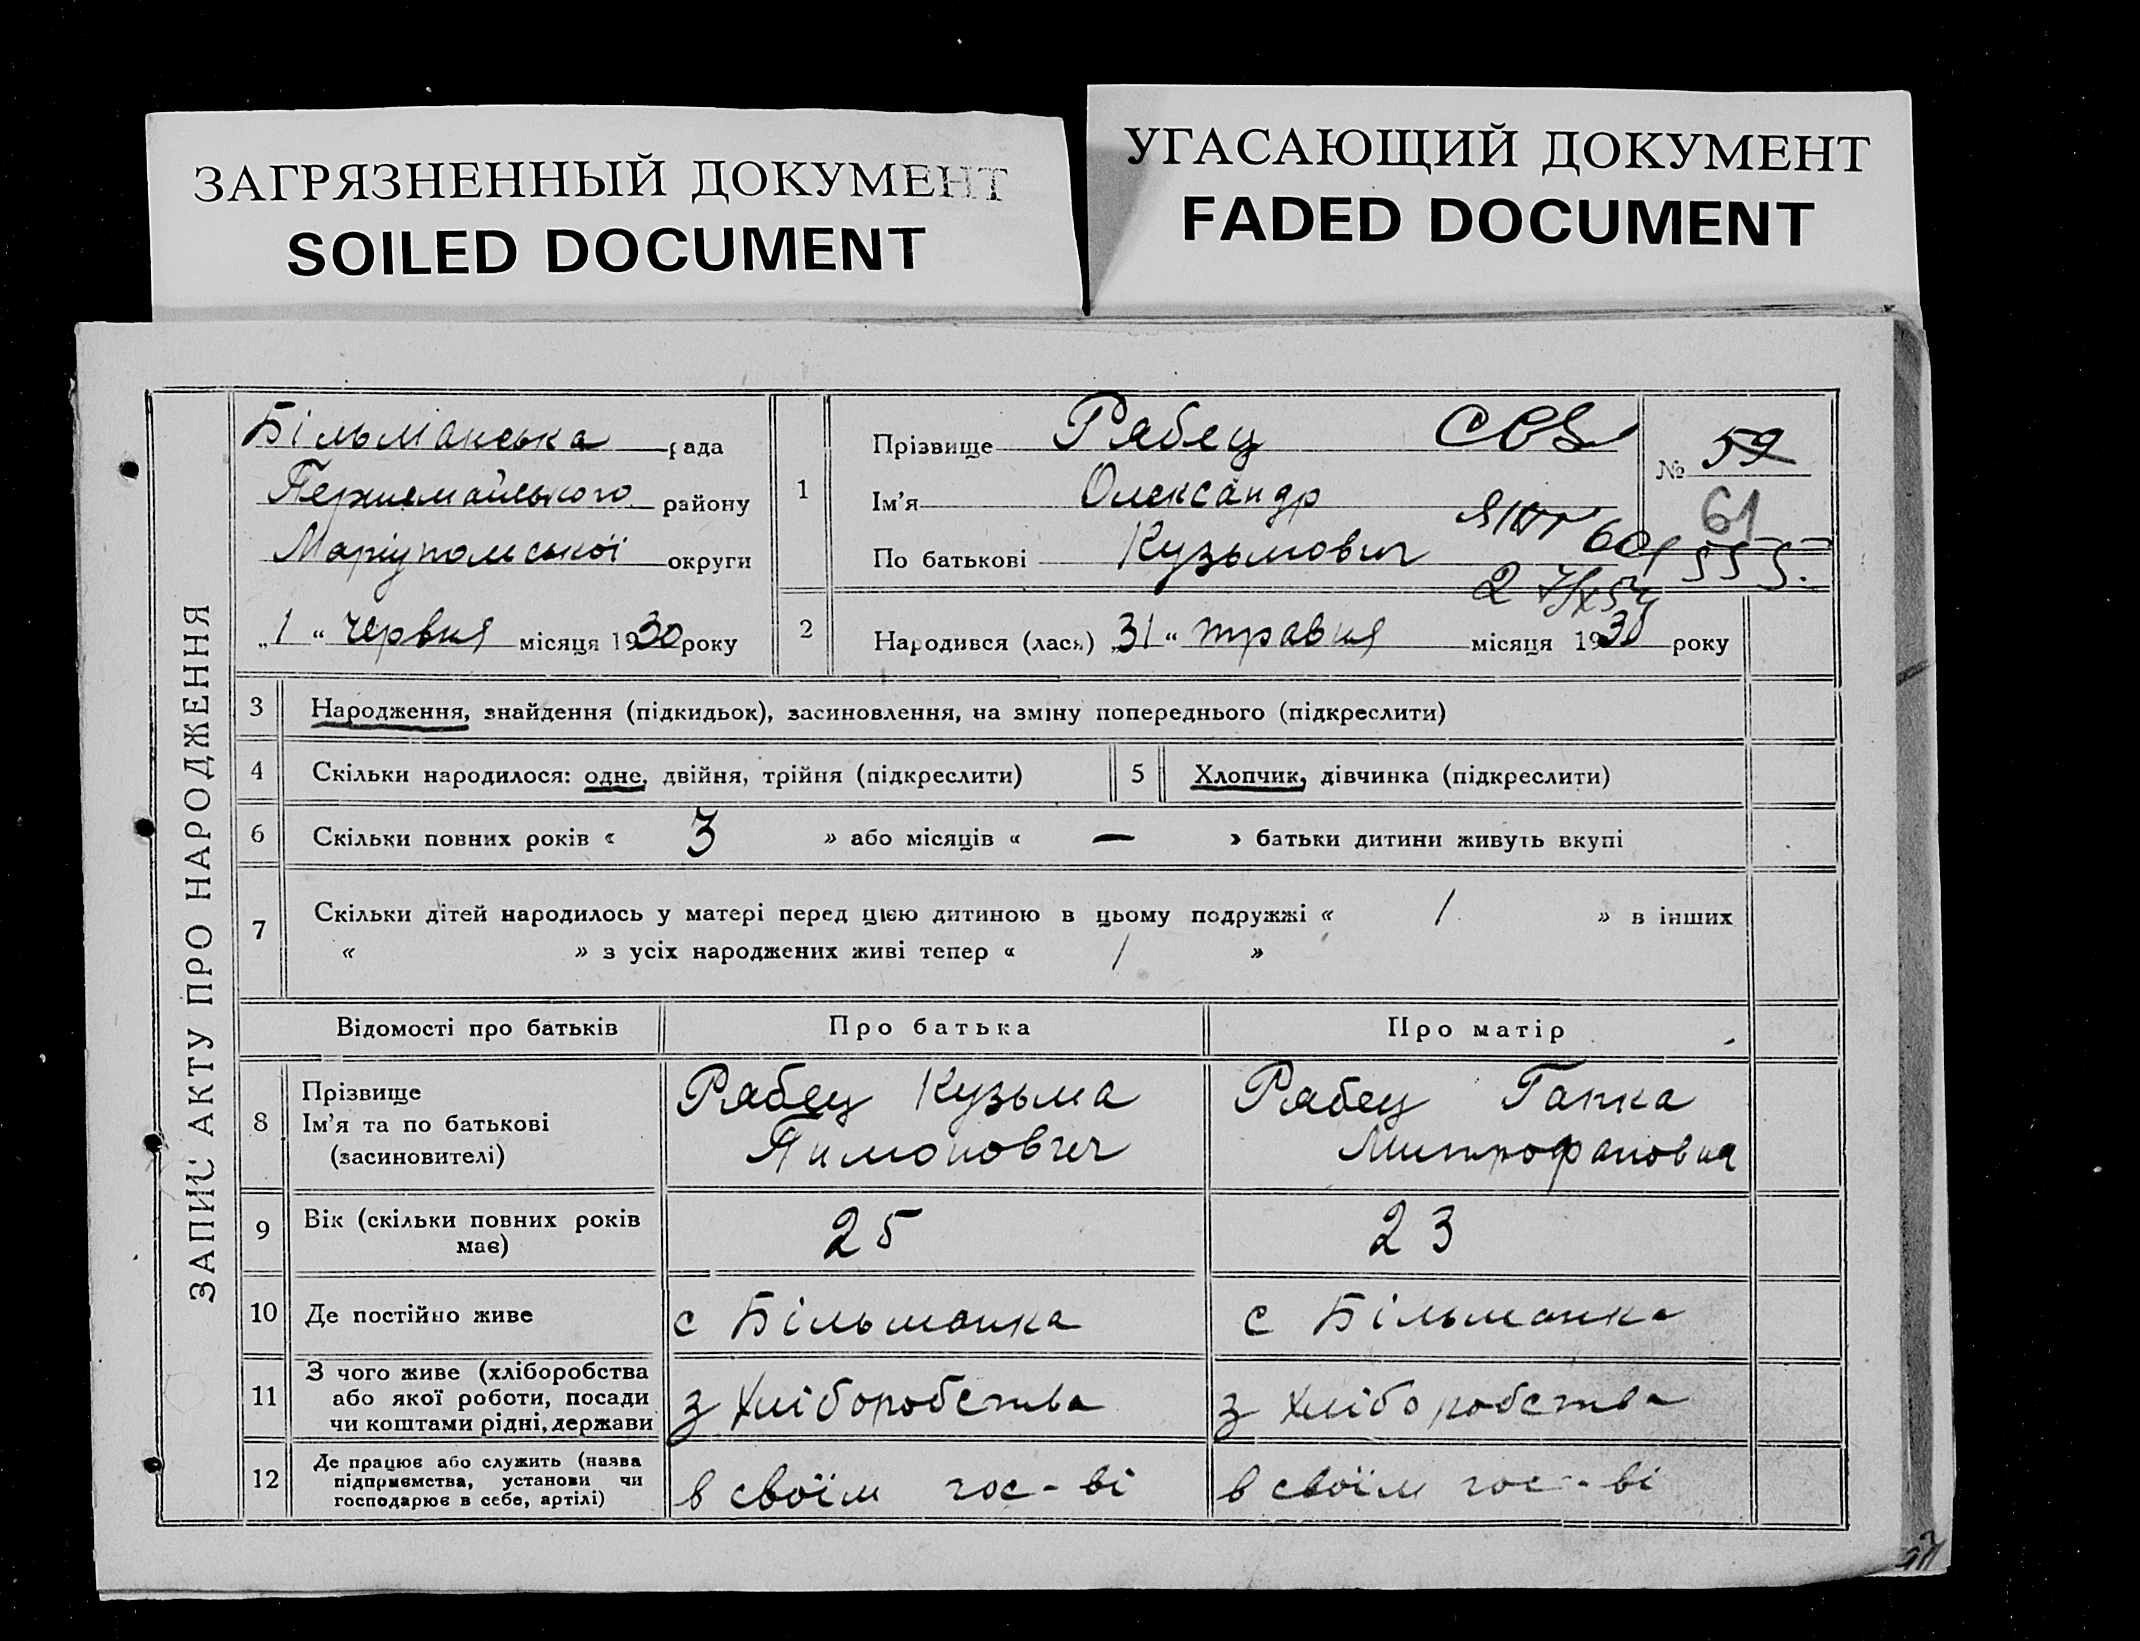 ЗАГРЯЗНЕННЫЙ ДОКУМЕНТ
SOILED DOCUMENT
УГАСАЮЩИЙ ДОКУМЕНТ
FADED DOCUMENT
ЗАПИС АКТУ ПРО НАРОДЖЕННЯ
Більманська рада
Першемайського району
Маріупольської округи
„1“ червня місяця 1930 року
1
Прізвище Рябец
Ім'я Олександр
По батькові Кузьмович
№ 59
61
2
Народився (лася) „31“ травня місяця 1930 року
3 Народження, знайдення (підкидьок), засиновлення, на зміну попереднього (підкреслити)
4 Скільки народилося: одне, двійня, трійня (підкреслити)
5 Хлопчик, дівчинка (підкреслити)
6 Скільки повних років « 3 » або місяців « — » батьки дитини живуть вкупі
7 Скільки дітей народилось у матері перед цією дитиною в цьому подружжі « 1 » в інших
« » з усіх народжених живі тепер « 1 »
Відомості про батьків Про батька Про матір
8 Прізвище
Ім'я та по батькові
(засиновителі)
Рябец Кузьма
Пимонович
Рябец Гапка
Митрофановна
9 Вік (скільки повних років
має)
25 23
10 Де постійно живе с Більманка с Більманка
11 З чого живе (хліборобства
або якої роботи, посади
чи коштами рідні, держави
з хліборобства з хліборобства
12 Де працює або служить (назва
підприємства, установи чи
господарює в себе, артілі)
в своїм гос-ві в своїм гос-ві